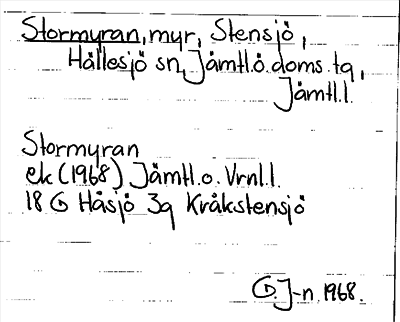 Stormyran, myr, Stensjö,
Hällesjö sn, Jämtl.ö.doms.tg,
Jämtl.l.
Stormyran
ek (1968) Jämtl.o.Vrnl.l.
18 G Håsjö 3g Kråkstensjö
G.J-n. 1968.